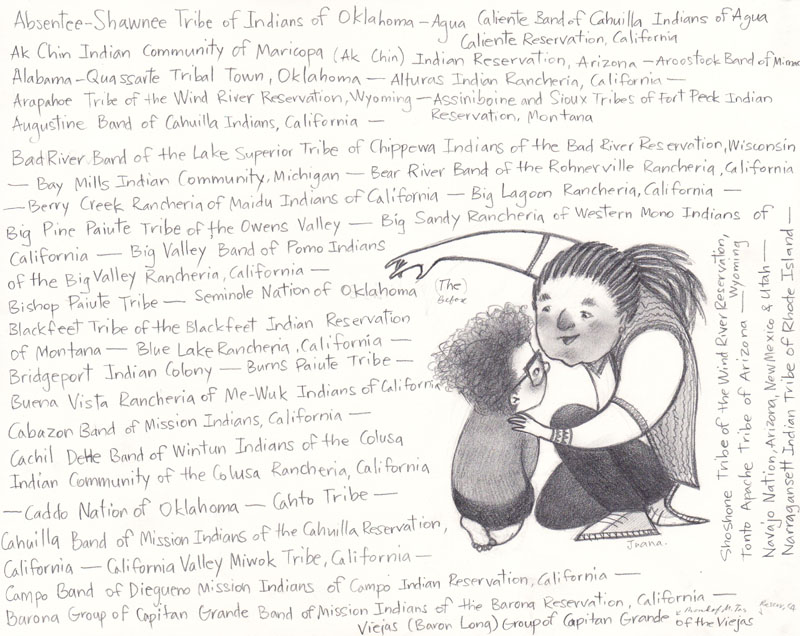 Absentee-Shawnee Tribe of Indians of Oklahoma – Agua Caliente Band of Cahuilla Indians of Agua
Caliente Reservation, California
Ak Chin Indian Community of Maricopa (Ak Chin) Indian Reservation, Arizona – Aroostock Band of
Alabama-Quassarte Tribal Town, Oklahoma — Alturas Indian Rancheria, California —
Arapahoe Tribe of the Wind River Reservation, Wyoming — Assiniboine and Sioux Tribes of Fort Peck Indian
Reservation, Montana
Augustine Band of Cahuilla Indians, California —
Bad River Band of the Lake Superior Tribe of Chippewa Indians of the Bad River Reservation, Wisconsin
— Bay Mills Indian Community, Michigan — Bear River Band of the Rohnerville Rancheria, California
— Berry Creek Rancheria of Maidu Indians of California — Big Lagoon Rancheria, California —
Big Pine Paiute Tribe of the Owens Valley — Big Sandy Rancheria of Western Mono Indians of
California — Big Valley Band of Pomo Indians
of the Big Valley Rancheria, California —
Bishop Paiute Tribe — Seminole Nation of Oklahoma
Blackfeet Tribe of the Blackfeet Indian Reservation
of Montana — Blue Lake Rancheria, California —
Bridgeport Indian Colony — Burns Paiute Tribe —
Buena Vista Rancheria of Me-Wuk Indians of California
Cabazon Band of Mission Indians, California —
Cachil DeHe Band of Wintun Indians of the Colusa
Indian Community of the Colusa Rancheria, California
— Caddo Nation of Oklahoma — Cahto Tribe —
Cahuilla Band of Mission Indians of the Cahuilla Reservation,
California — California Valley Miwok Tribe, California —
Campo Band of Diegueno Mission Indians of Campo Indian Reservation, California —
Barona Group of Capitan Grande Band of Mission Indians of the Barona Reservation, California —
Viejas (Baron Long) Group of Capitan Grande
of the Viejas
(The)
Before
Jnana.
Shoshone Tribe of the Wind River Reservation,
Wyoming
Tonto Apache Tribe of Arizona —
Navajo Nation, Arizona, New Mexico & Utah —
Narragansett Indian Tribe of Rhode Island —